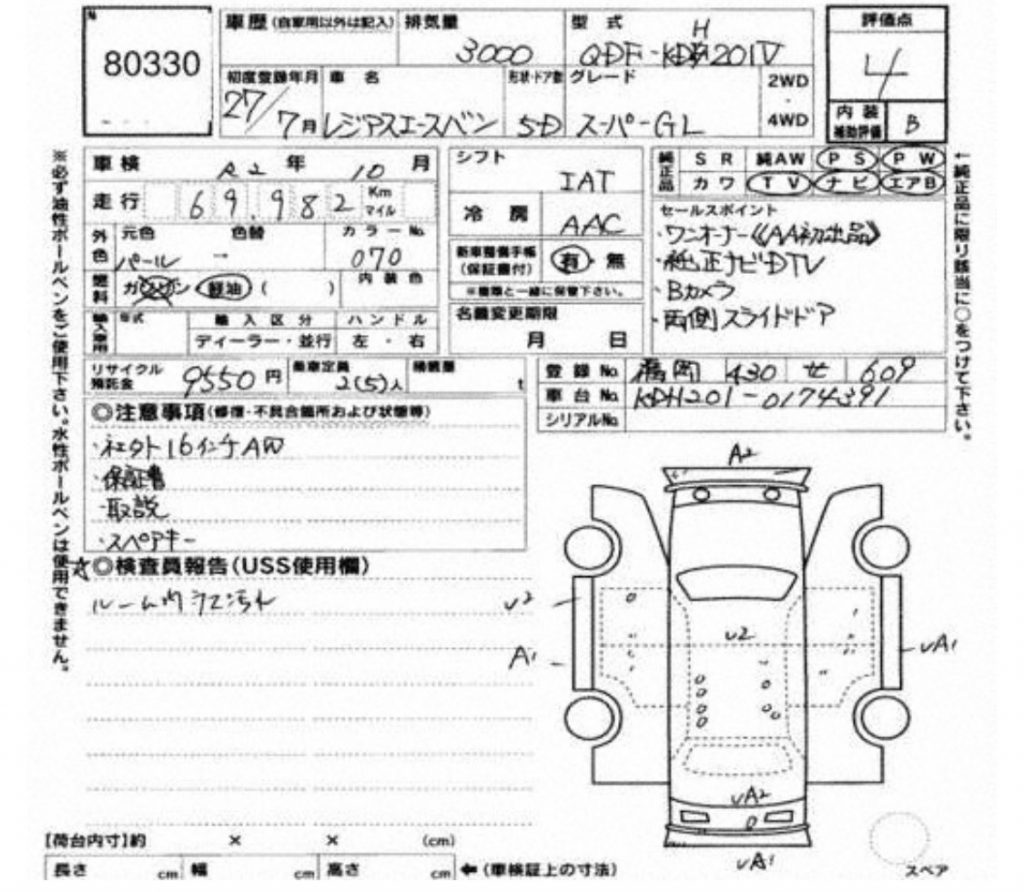 80330
車歴(自家用以外は記入)
排気量
3000
型式
H
QDF-KDH201V
評価点
4
初度登録年月
27/7月
車名
レジアスエースバン
形状・ドア数
5D
グレード
スーパーGL
2WD
・
4WD
内装
補助評価
B
※必ず油性ボールペンをご使用下さい。水性ボールペンは使用できません。
車検
R2年10月
走行
69,982
Km
マイル
外色
元色
パール
色替
→
カラーNo.
070
燃料
ガソリン・軽油( )
内装色
輸入車用
年式
輸入区分
ディーラー・並行
ハンドル
左・右
シフト
IAT
冷房
AAC
新車整備手帳
(保証書付)
有・無
※書類と一緒に保管下さい。
名義変更期限
月 日
純正品
SR 純AW PS PW
カワ TV ナビ エアB
セールスポイント
・ワンオーナー《AA初出品》
・純正ナビDTV
・Bカメラ
・両側スライドドア
←純正品に限り該当に○をつけて下さい。
リサイクル
預託金
9550円
乗車定員
2(5)人
積載量
t
登録No.
福岡 430 せ 609
車台No.
KDH201-0174391
シリアルNo.
◎注意事項(修復・不具合箇所および状態等)
・社外16インチAW
・保証書
・取説
・スペアキー
☆◎検査員報告(USS使用欄)
ルーム内汚れ
A2
U2
A1
U2
UA1
UA2
UA1
スペア
【荷台内寸】約 × × (cm)
長さ cm 幅 cm 高さ cm ←(車検証上の寸法)